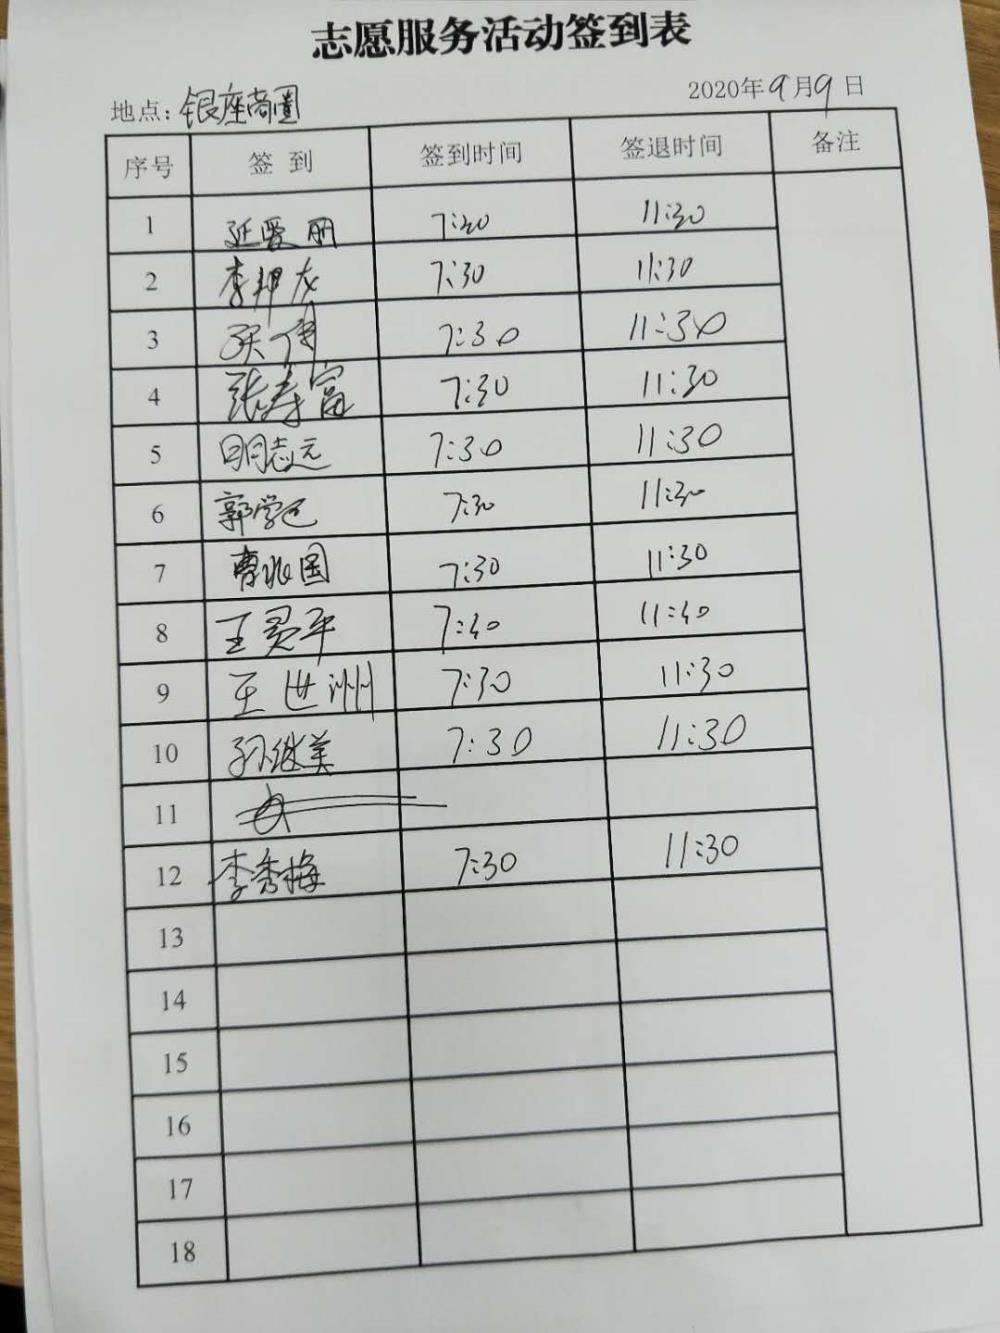 志愿服务活动签到表
地点: 银座商圈 2020年9月9日
序号 签到 签到时间 签退时间 备注
1 延爱丽 7:30 11:30
2 李 7:30 11:30
3 7:30 11:30
4 张寿富 7:30 11:30
5 明志远 7:30 11:30
6 郭学 7:30 11:30
7 曹兆国 7:30 11:30
8 王灵平 7:30 11:30
9 王世洲 7:30 11:30
10 孙继美 7:30 11:30
11
12 李秀梅 7:30 11:30
13
14
15
16
17
18